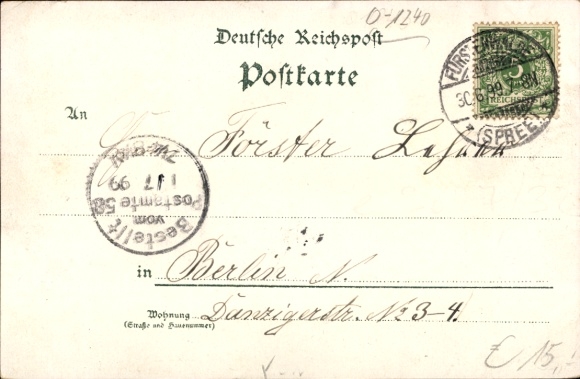 O-1240
Deutsche Reichspost
Postkarte
An
Förster
in Berlin N.
Wohnung
(Straße und Hausnummer)
Danzigerstr. No 3-4.
FÜRSTENWALDE
30.6.99
(SPREE)
5
REICHSPOST
Bestellt
vom
Postamte 58
1 7 99
€ 15,-